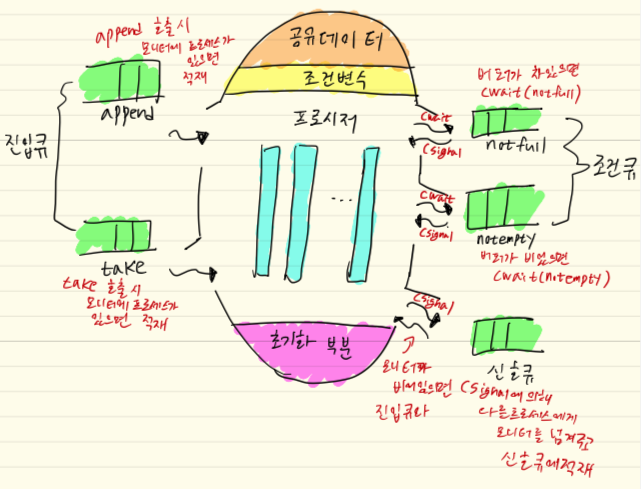 append 호출시
모니터에 프로세스가
있으면
적재
append
진입큐
take
take 호출시
모니터에 프로세스가
있으면 적재
공유데이터
조건변수
프로시저
...
초기화 부분
cwait
csignal
버퍼가 차있으면
cwait(notfull)
notfull
조건큐
cwait
csignal
notempty
버퍼가 비었으면
cwait(notempty)
csignal
모니터가
비어있으면
진입큐와
신호큐
csignal에 의해
다른프로세스에게
모니터를 넘겨주고
신호큐에적재